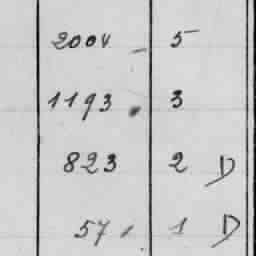 2004 - 5
1193 . 3
823 2 D
57 . 1 D